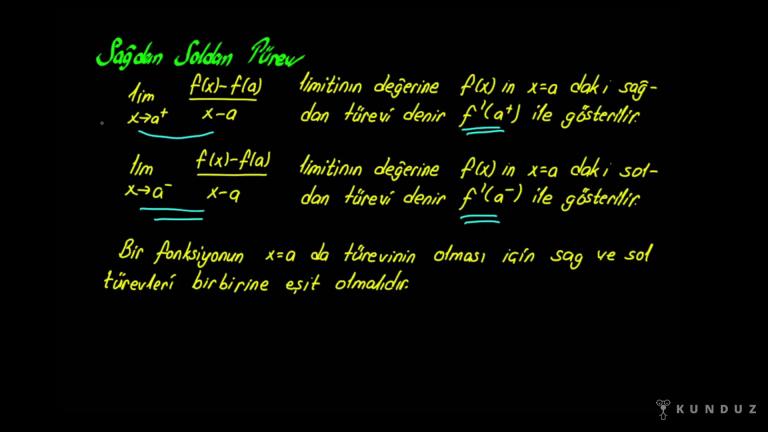 Sağdan Soldan Türev
lim x→a⁺ f(x)-f(a) / x-a limitinin değerine f(x) in x=a daki sağ-
dan türevi denir f'(a⁺) ile gösterilir.
lim x→a⁻ f(x)-f(a) / x-a limitinin değerine f(x) in x=a daki sol-
dan türevi denir f'(a⁻) ile gösterilir.
Bir fonksiyonun x=a da türevinin olması için sag ve sol
türevleri birbirine eşit olmalıdır.
KUNDUZ